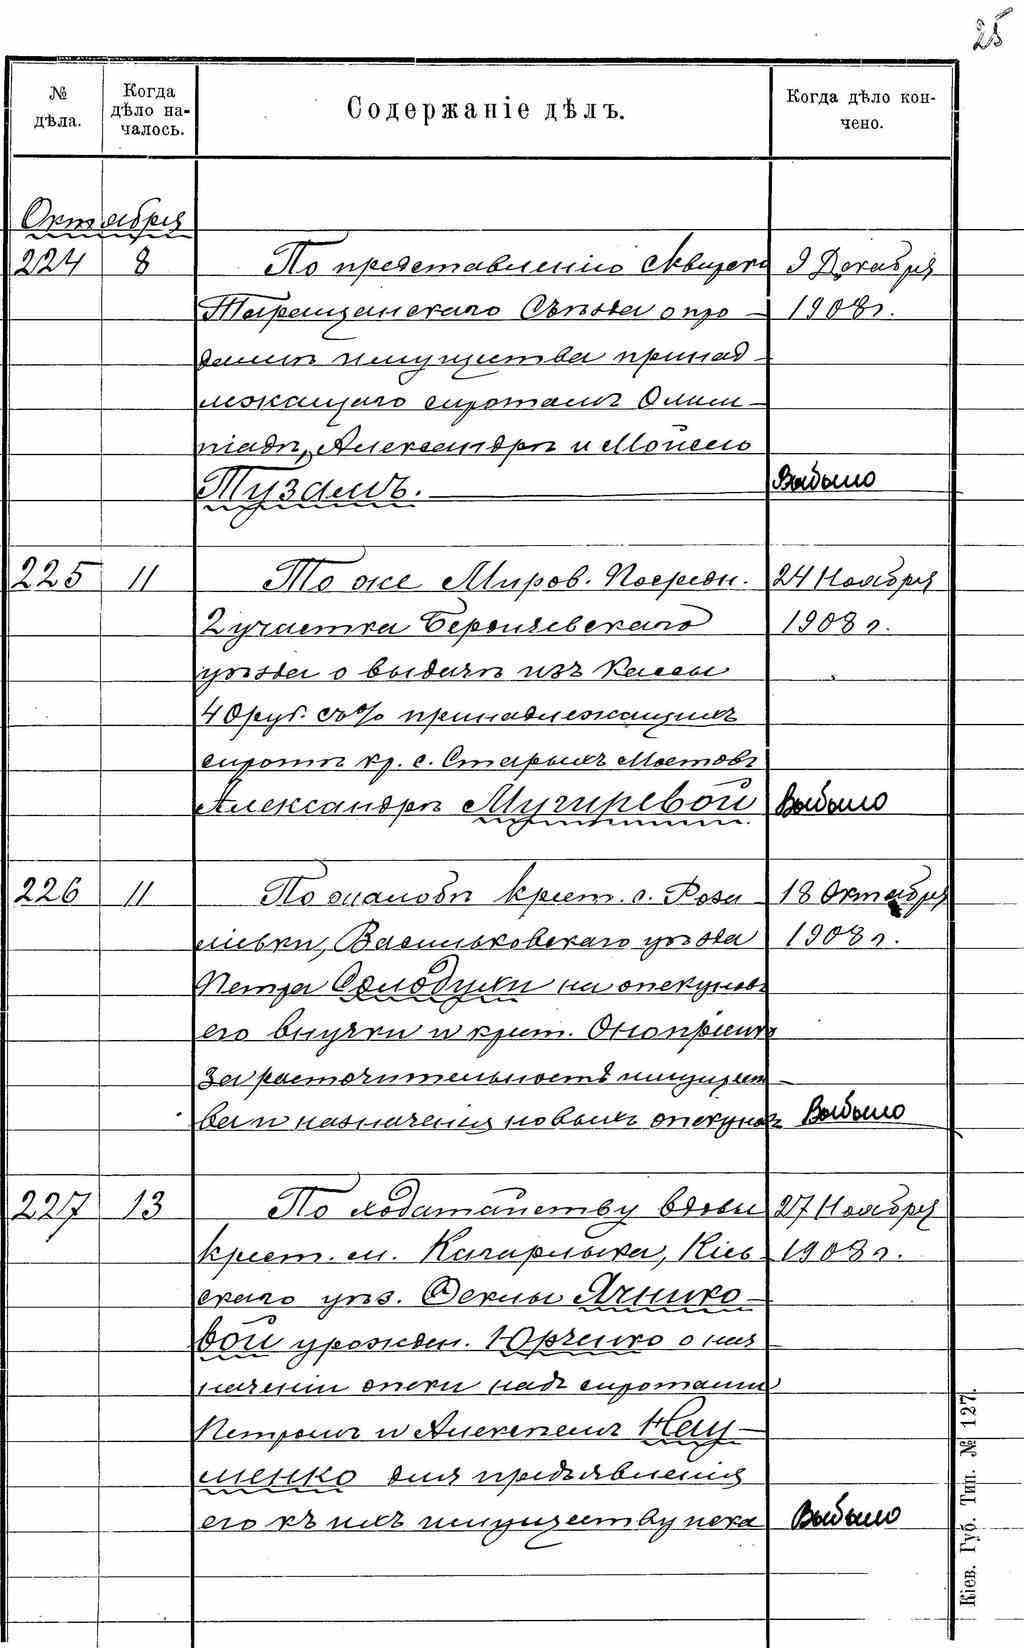 25
№ дѣла.
Когда дѣло началось.
Содержаніе дѣлъ.
Когда дѣло кончено.
Октября
224 8 По представленію Сквирско 9 Декабря
Таращанскаго Съѣзда о про- 1908 г.
дажѣ имущества принад-
лежащаго сиротамъ Олим-
піадѣ, Александрѣ и Мойсею
Тузамъ. Выбыло
225 11 То же Миров. Посредн. 24 Ноября
2 участка Бердичевскаго 1908 г.
уѣзда о выдачѣ изъ Кассы
40 руб. съ % принадлежащихъ
сиротѣ кр. с. Старыхъ Мостовъ
Александрѣ Мучиревой Выбыло
226 11 По жалобѣ крест. с. Рози- 18 Октября
ліевки, Васильковскаго уѣзда 1908 г.
Петра Солодухи на опекуновъ
его внучки и крест. Оноприенко
за расточительность имущест-
ва и назначенія новыхъ опекуновъ Выбыло
227 13 По ходатайству вдовы 27 Ноября
крест. м. Кагарлыка, Кіев- 1908 г.
скаго уѣз. Феклы Ячнико-
вой урожден. Юрченко о наз
наченіи опеки надъ сиротами
Петромъ и Алексѣемъ Нау-
менко для предъявленія
его къ ихъ имуществу иска Выбыло
Кіев. Губ. Тип. № 127.